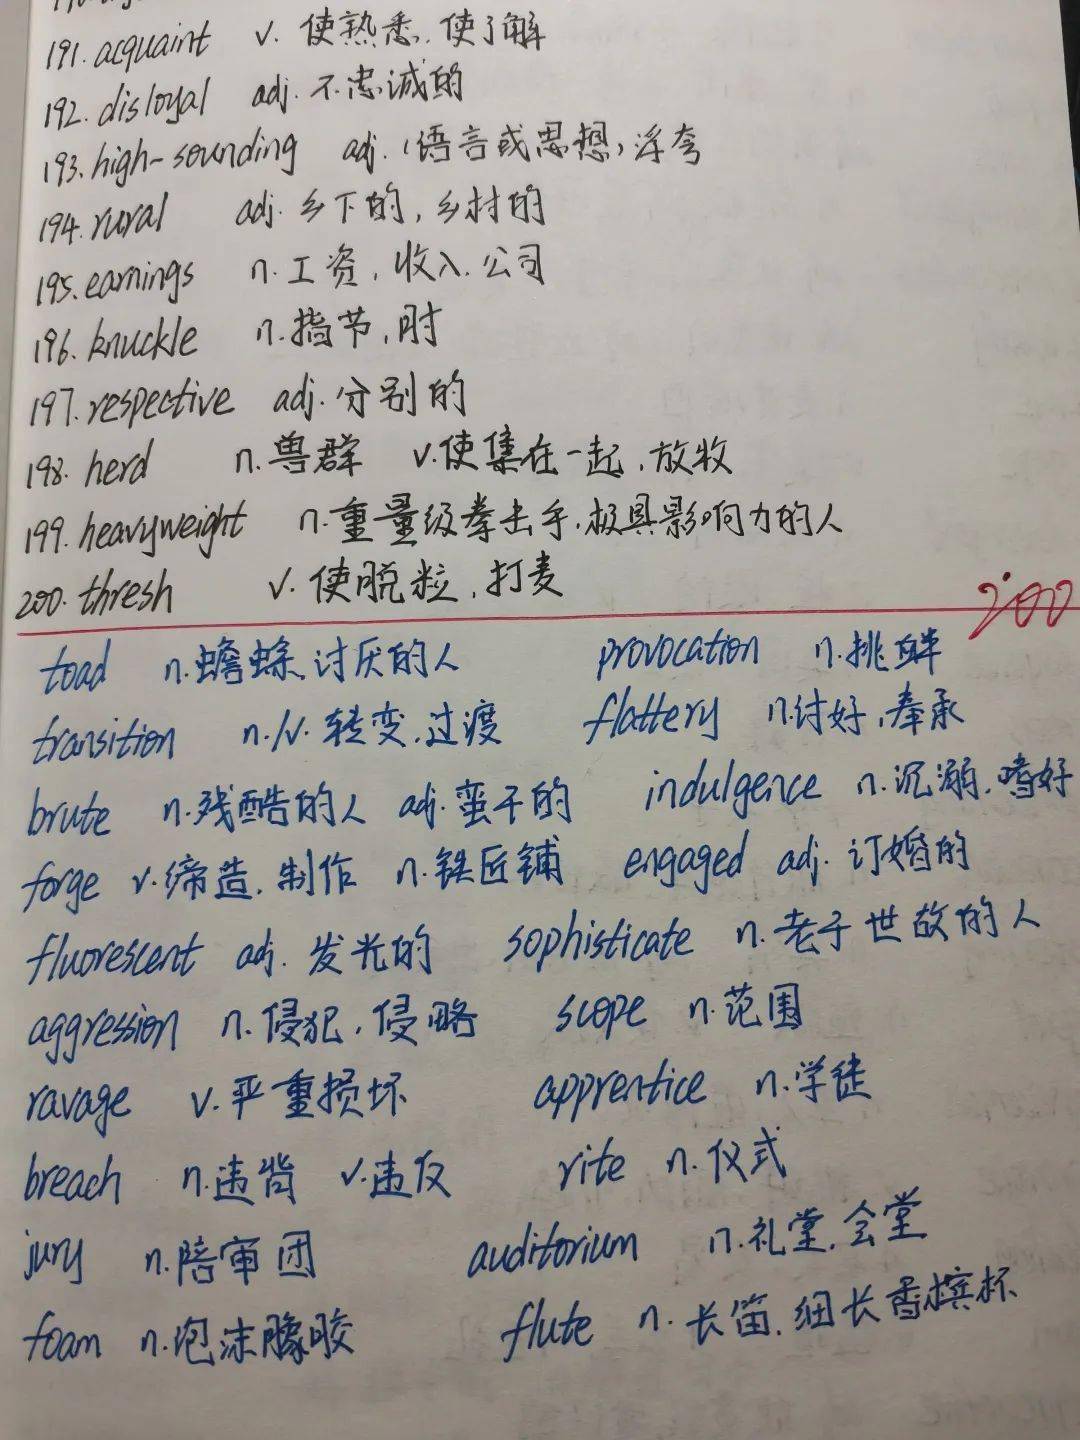 191. acquaint v. 使熟悉.使了解
192. disloyal adj. 不忠诚的
193. high-sounding adj. (语言或思想)浮夸
194. rural adj. 乡下的, 乡村的
195. earnings n. 工资, 收入. 公司
196. knuckle n. 指节, 肘
197. respective adj. 分别的
198. herd n. 兽群 v. 使集在一起, 放牧
199. heavyweight n. 重量级拳击手.极具影响力的人
200. thresh v. 使脱粒, 打麦
200
toad n. 蟾蜍.讨厌的人 provocation n. 挑衅
transition n./v. 转变.过渡 flattery n. 讨好, 奉承
brute n. 残酷的人 adj. 蛮干的 indulgence n. 沉溺.嗜好
forge v. 缔造. 制作 n. 铁匠铺 engaged adj. 订婚的
fluorescent adj. 发光的 sophisticate n. 老于世故的人
aggression n. 侵犯, 侵略 scope n. 范围
ravage v. 严重损坏 apprentice n. 学徒
breach n. 违背 v. 违反 rite n. 仪式
jury n. 陪审团 auditorium n. 礼堂.会堂
foam n. 泡沫橡胶 flute n. 长笛. 细长香槟杯